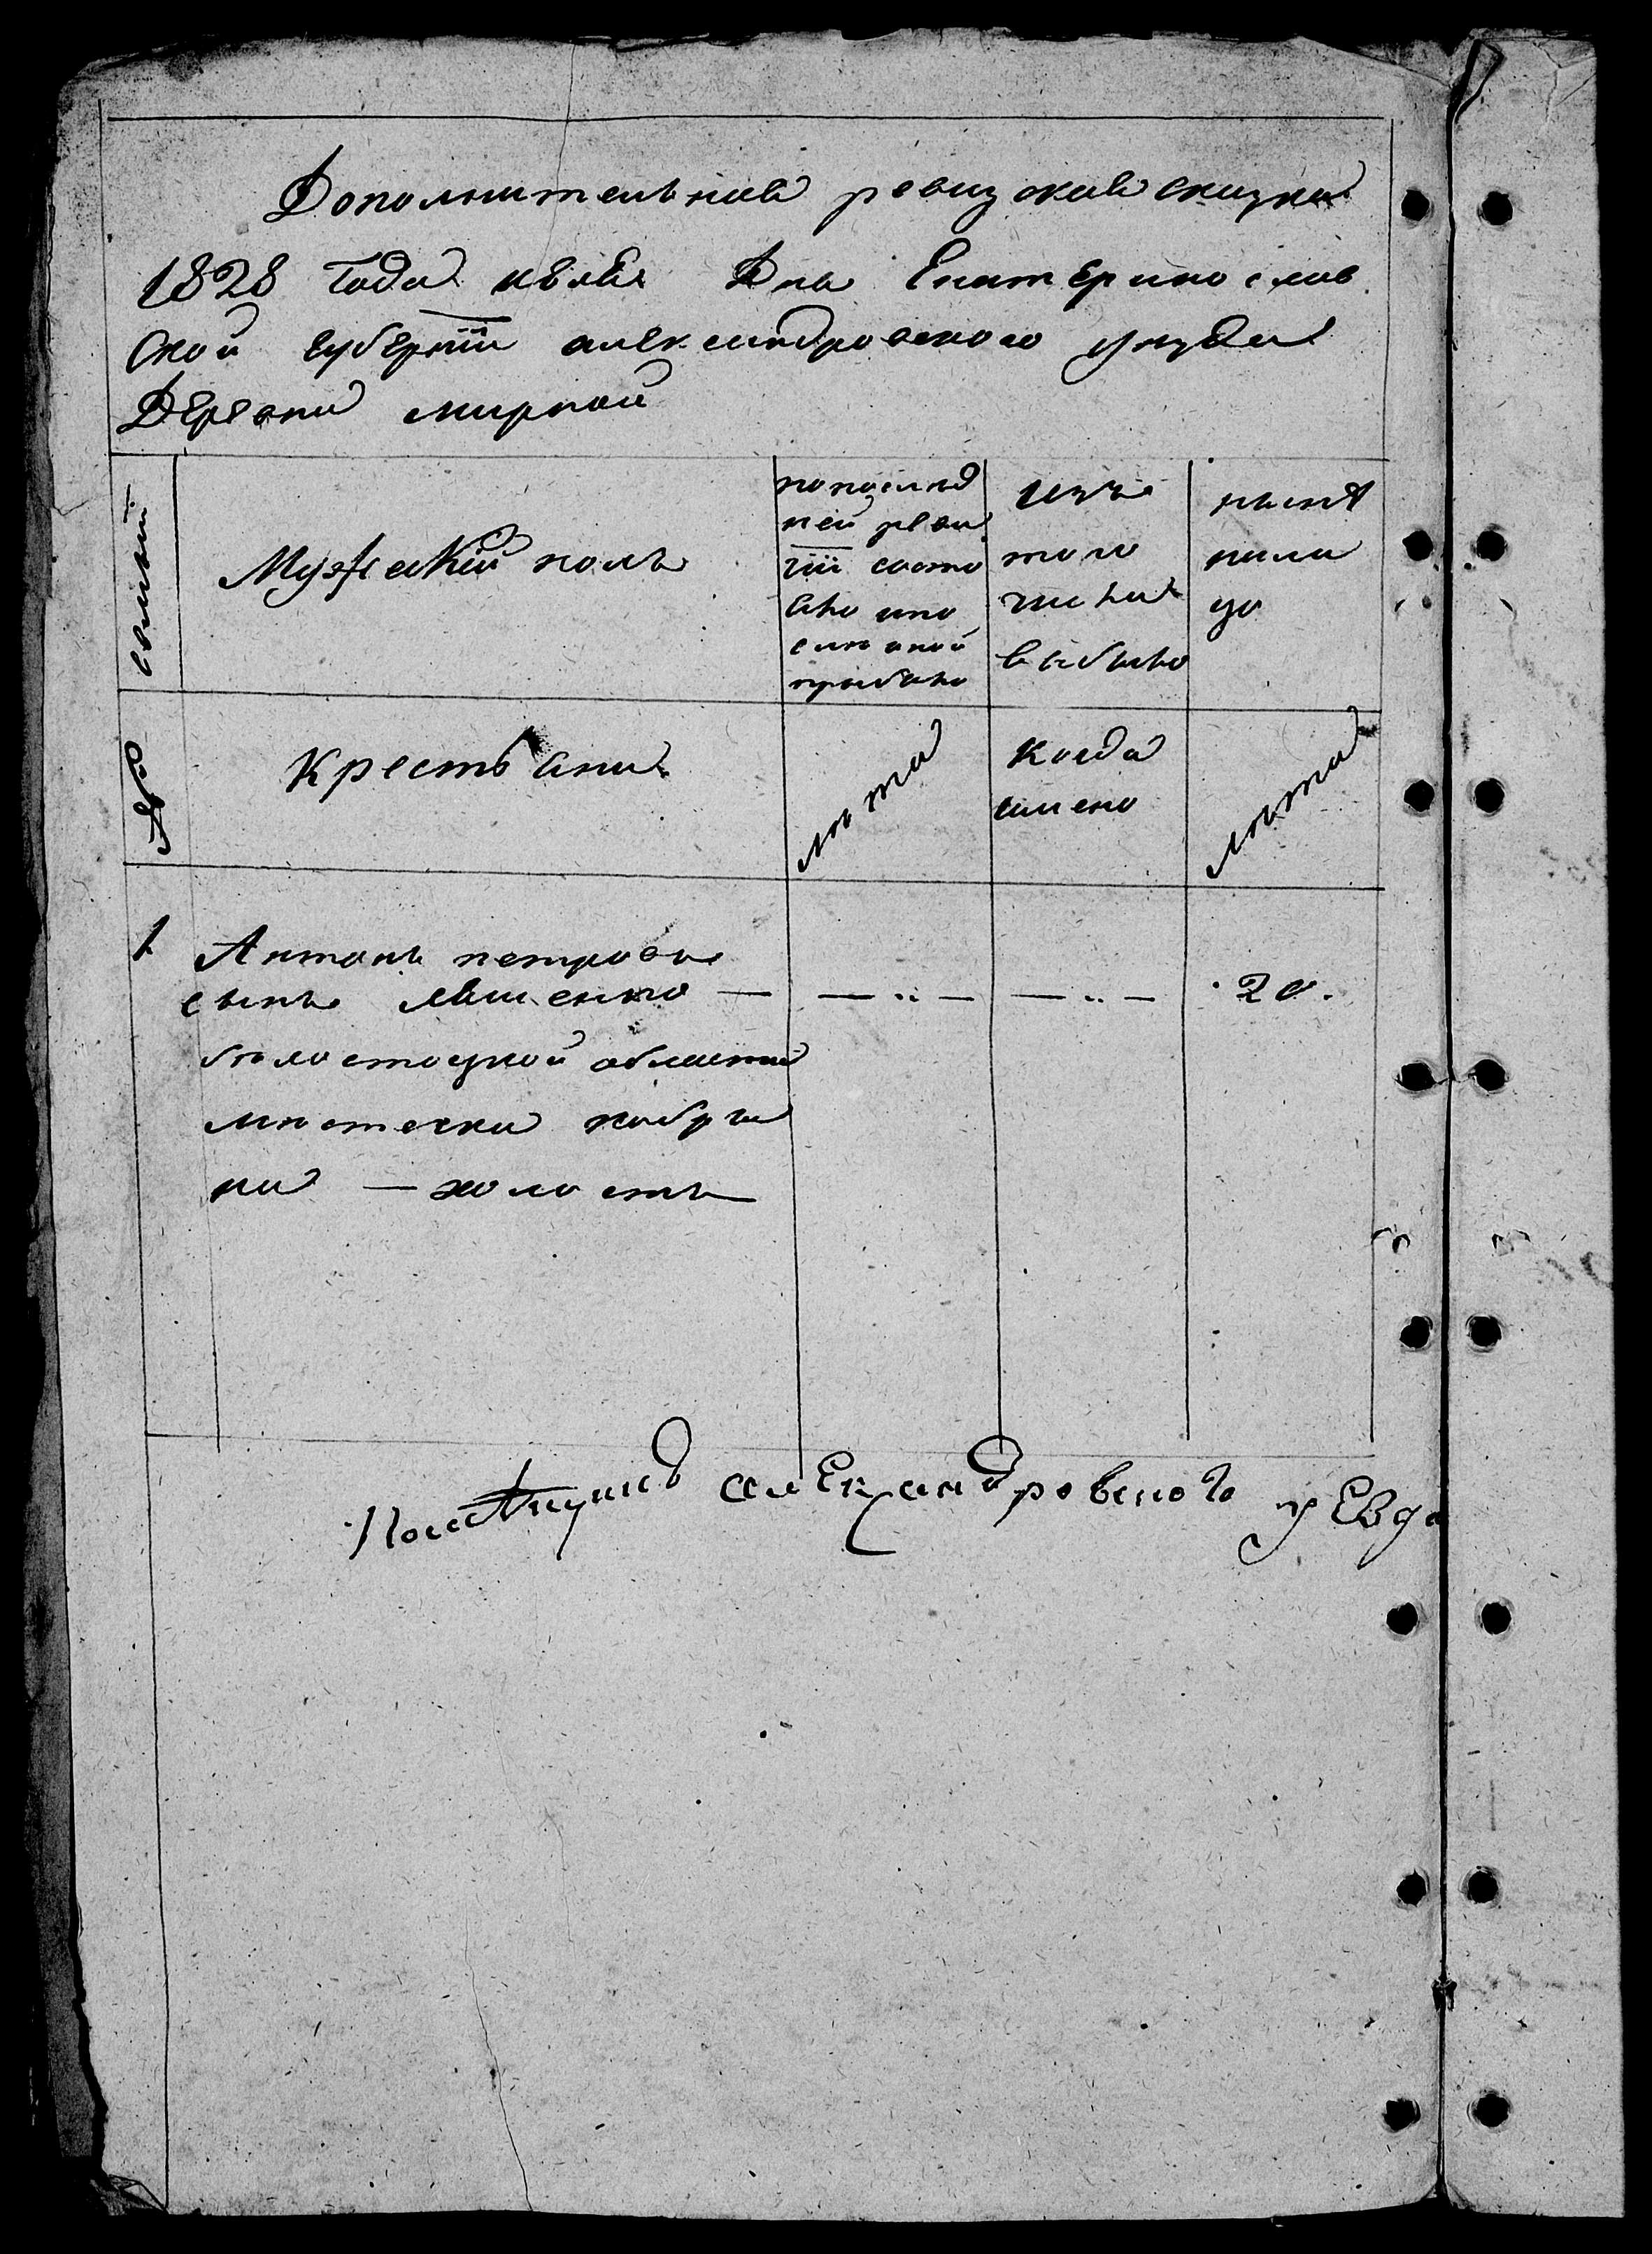 Дополнительная ревизская сказка
1828 года июля Дня Екатеринослав
ской губернiи александровского уезда
Деревни мирной
семьи
Мужескiй полъ
по послед
ней реви
зiи состо
яло и по
сле оной
прибыло
изъ
того
числа
выбыло
ныне
на ли
цо
№
Крестьяни
лета
когда
имено
лета
1 Антонъ петровъ
сынъ — — " — — " — 20.
белостоцкой области
местечка кобри
на — холостъ
Помещикъ александровского уезда